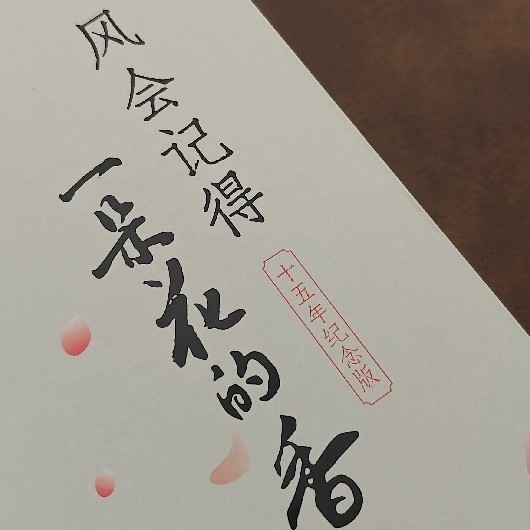 风会记得
一朵花的香
十五年纪念版